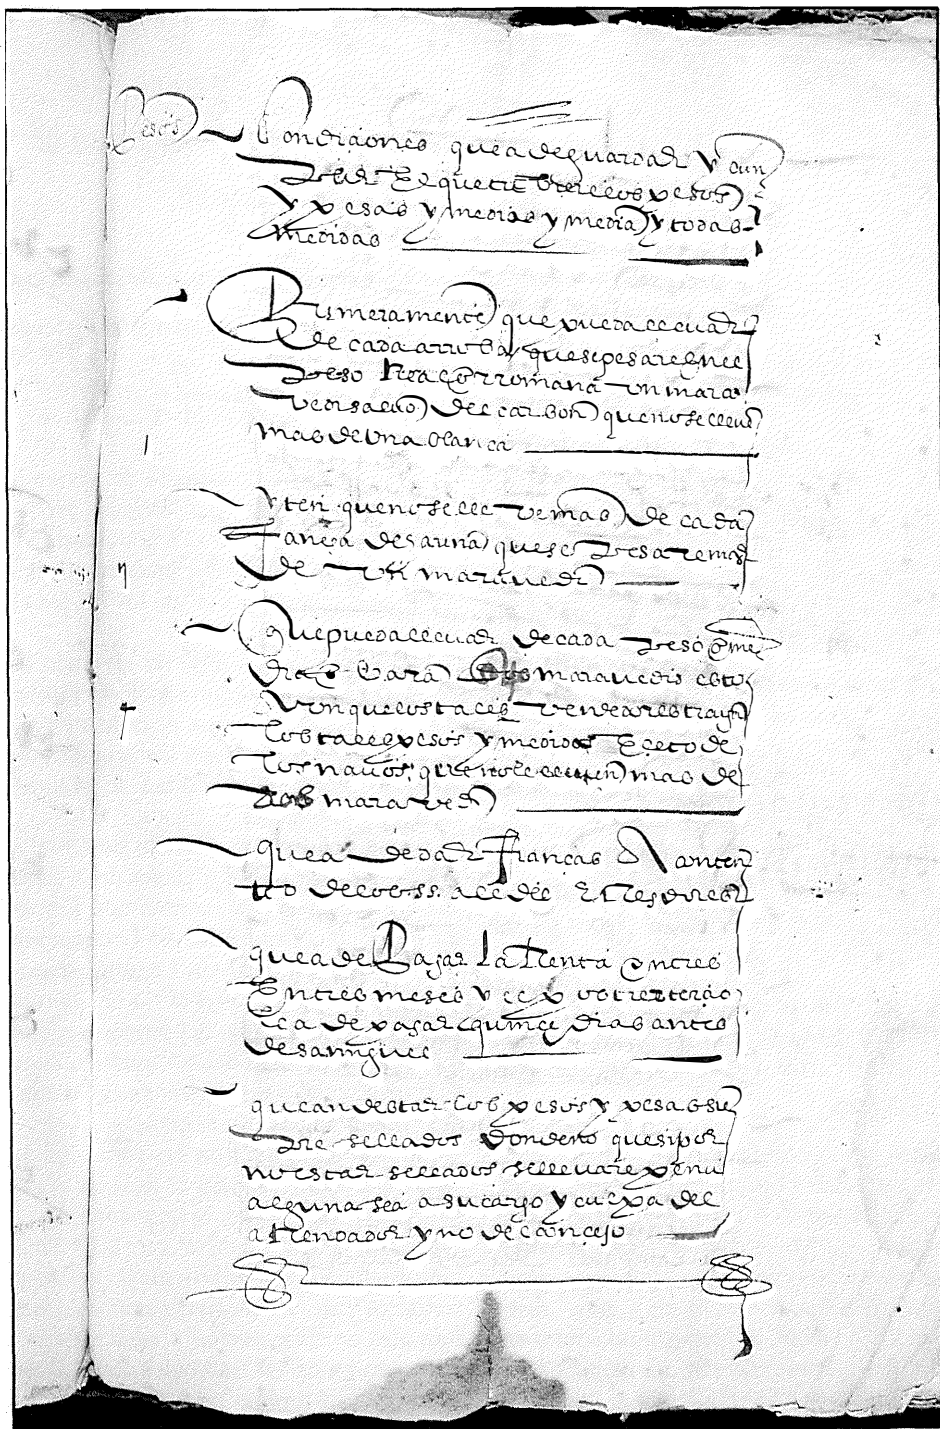 Pesos
Condiciones que a de guardar y cun
plir el que tubiere los pesos
y pesas y medias y media y todas
medidas
Primeramente que pueda llevar
de cada arroba que se pesare en el
peso rreal o rromana un mara
vedi salvo del carbon que no se lleve
mas de una blanca
yten que no se lleve mas de cada
fanega de sarina que se pesare mas
de un maravedi
que pueda llevar de cada peso o me
dia o bara dos maravedis esto
los tales pesos y medidas eceto de
los que no le lleven mas de
dos maravedis
que a de dar fiancas
que a de pagar la rrenta en tres
en tres meses y el postrer tercio
le a de pagar quince dias antes
de san miguel
que an de estar los pesos y pesas sien
pre sellados donde no que si por
no estar sellados se llevare pena
alguna sea a su cargo y culpa del
arrendador y no de concejo